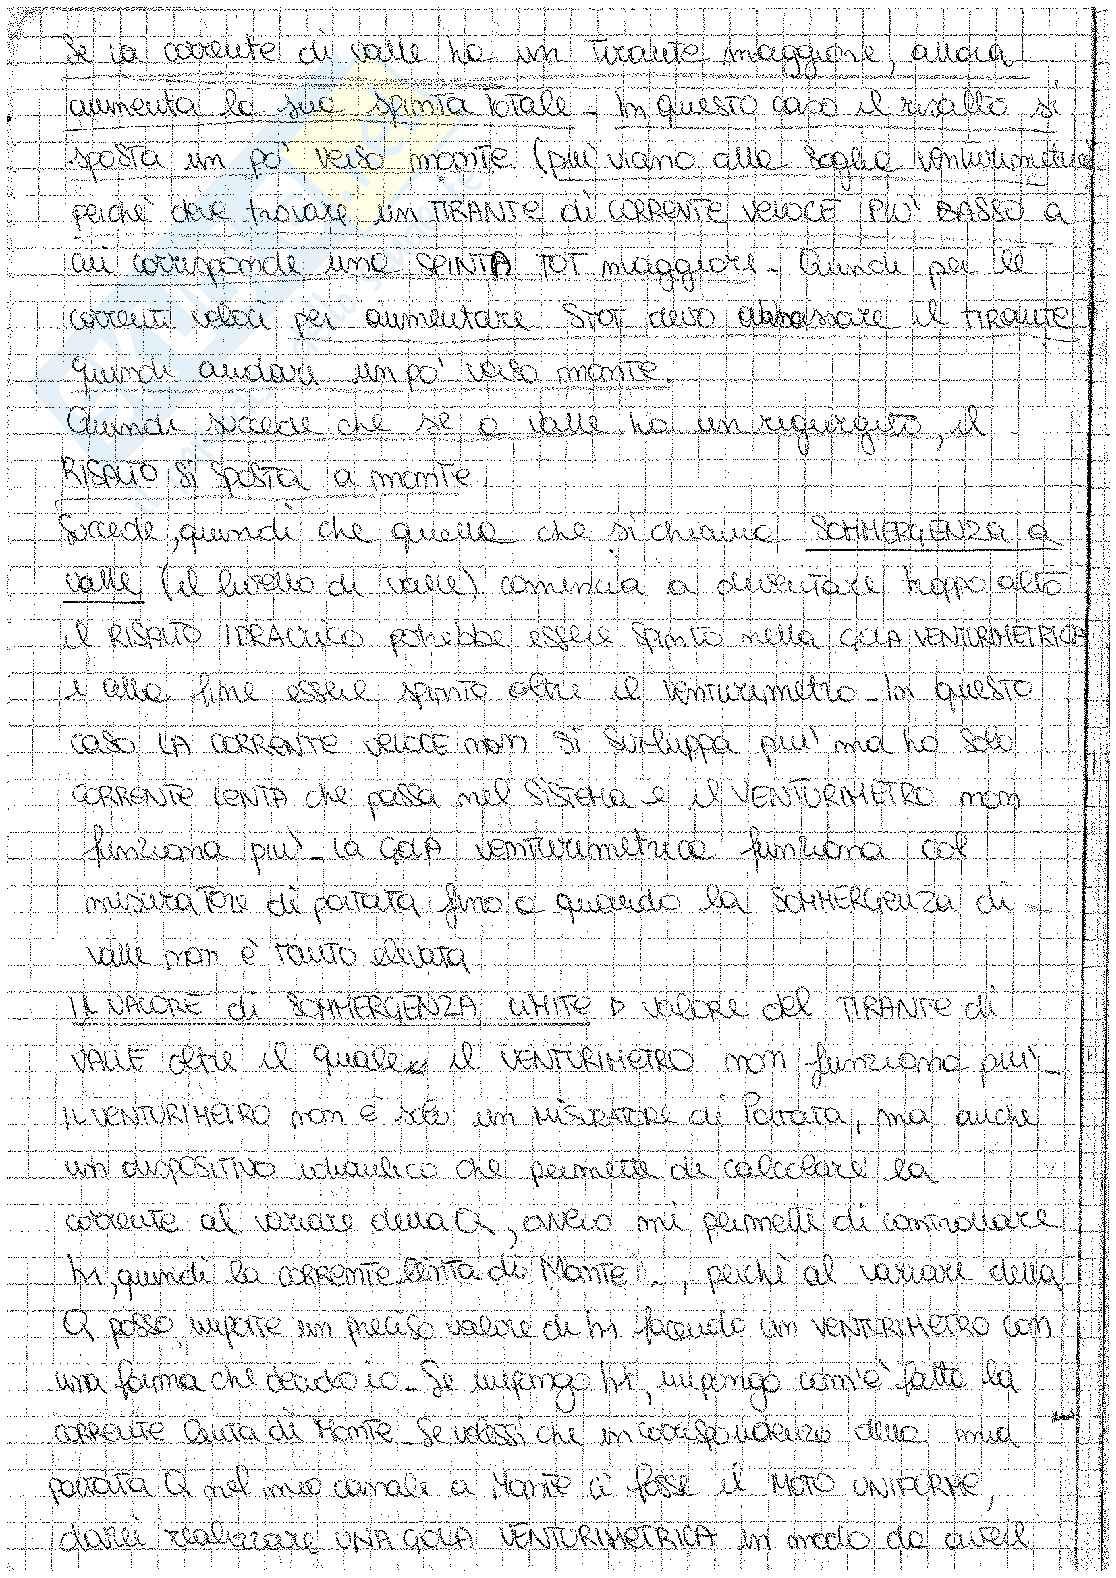 Se la corrente di valle ha un tirante maggiore, allora
aumenta la sua SPINTA TOTALE. In questo caso il risalto si
sposta un po' verso monte (più vicino alla soglia venturimetrica
perchè deve trovare un TIRANTE di CORRENTE VELOCE PIU' BASSO a
cui corrisponde una SPINTA TOT maggiore. Quindi per le
correnti veloci per aumentare STOT devo abbassare il TIRANTE
quindi andare un po' verso monte.
Quindi succede che se a valle ho un rigurgito, il
RISALTO SI SPOSTA a monte.
Succede, quindi che quella che si chiama SOMMERGENZA a
valle (il livello di valle) comincia a diventare troppo alto
il RISALTO IDRAULICO potrebbe essere spinto nella GOLA VENTURIMETRICA
e alla fine essere spinto oltre il venturimetro. In questo
caso LA CORRENTE VELOCE non SI SVILUPPA piu' ma ho solo
CORRENTE LENTA che passa nel SISTEMA e il VENTURIMETRO non
funziona piu'. La GOLA venturimetrica funziona col
misuratore di portata fino a quando la SOMMERGENZA di
valle non è tanto elevata
IL VALORE di SOMMERGENZA LIMITE Valore del TIRANTE di
VALLE oltre il quale il VENTURIMETRO non funziona piu'.
IL VENTURIMETRO non è solo un MISURATORE di Portata, ma anche
un DISPOSITIVO idraulico che permette di calcolare la
corrente al variare della Q, ovvero mi permette di controllare
h1, quindi la CORRENTE lenta di Monte, perchè al variare della
Q posso imporre un preciso valore di h1 facendo un VENTURIMETRO con
una forma che decido io. Se impongo h1, impongo com'è fatta la
CORRENTE lenta di Monte. Se volessi che in corrispondenza della mia
portata Q nel mio canale a Monte ci fosse il MOTO UNIFORME,
dovrei realizzare UNA GOLA VENTURIMETRICA in modo da avere